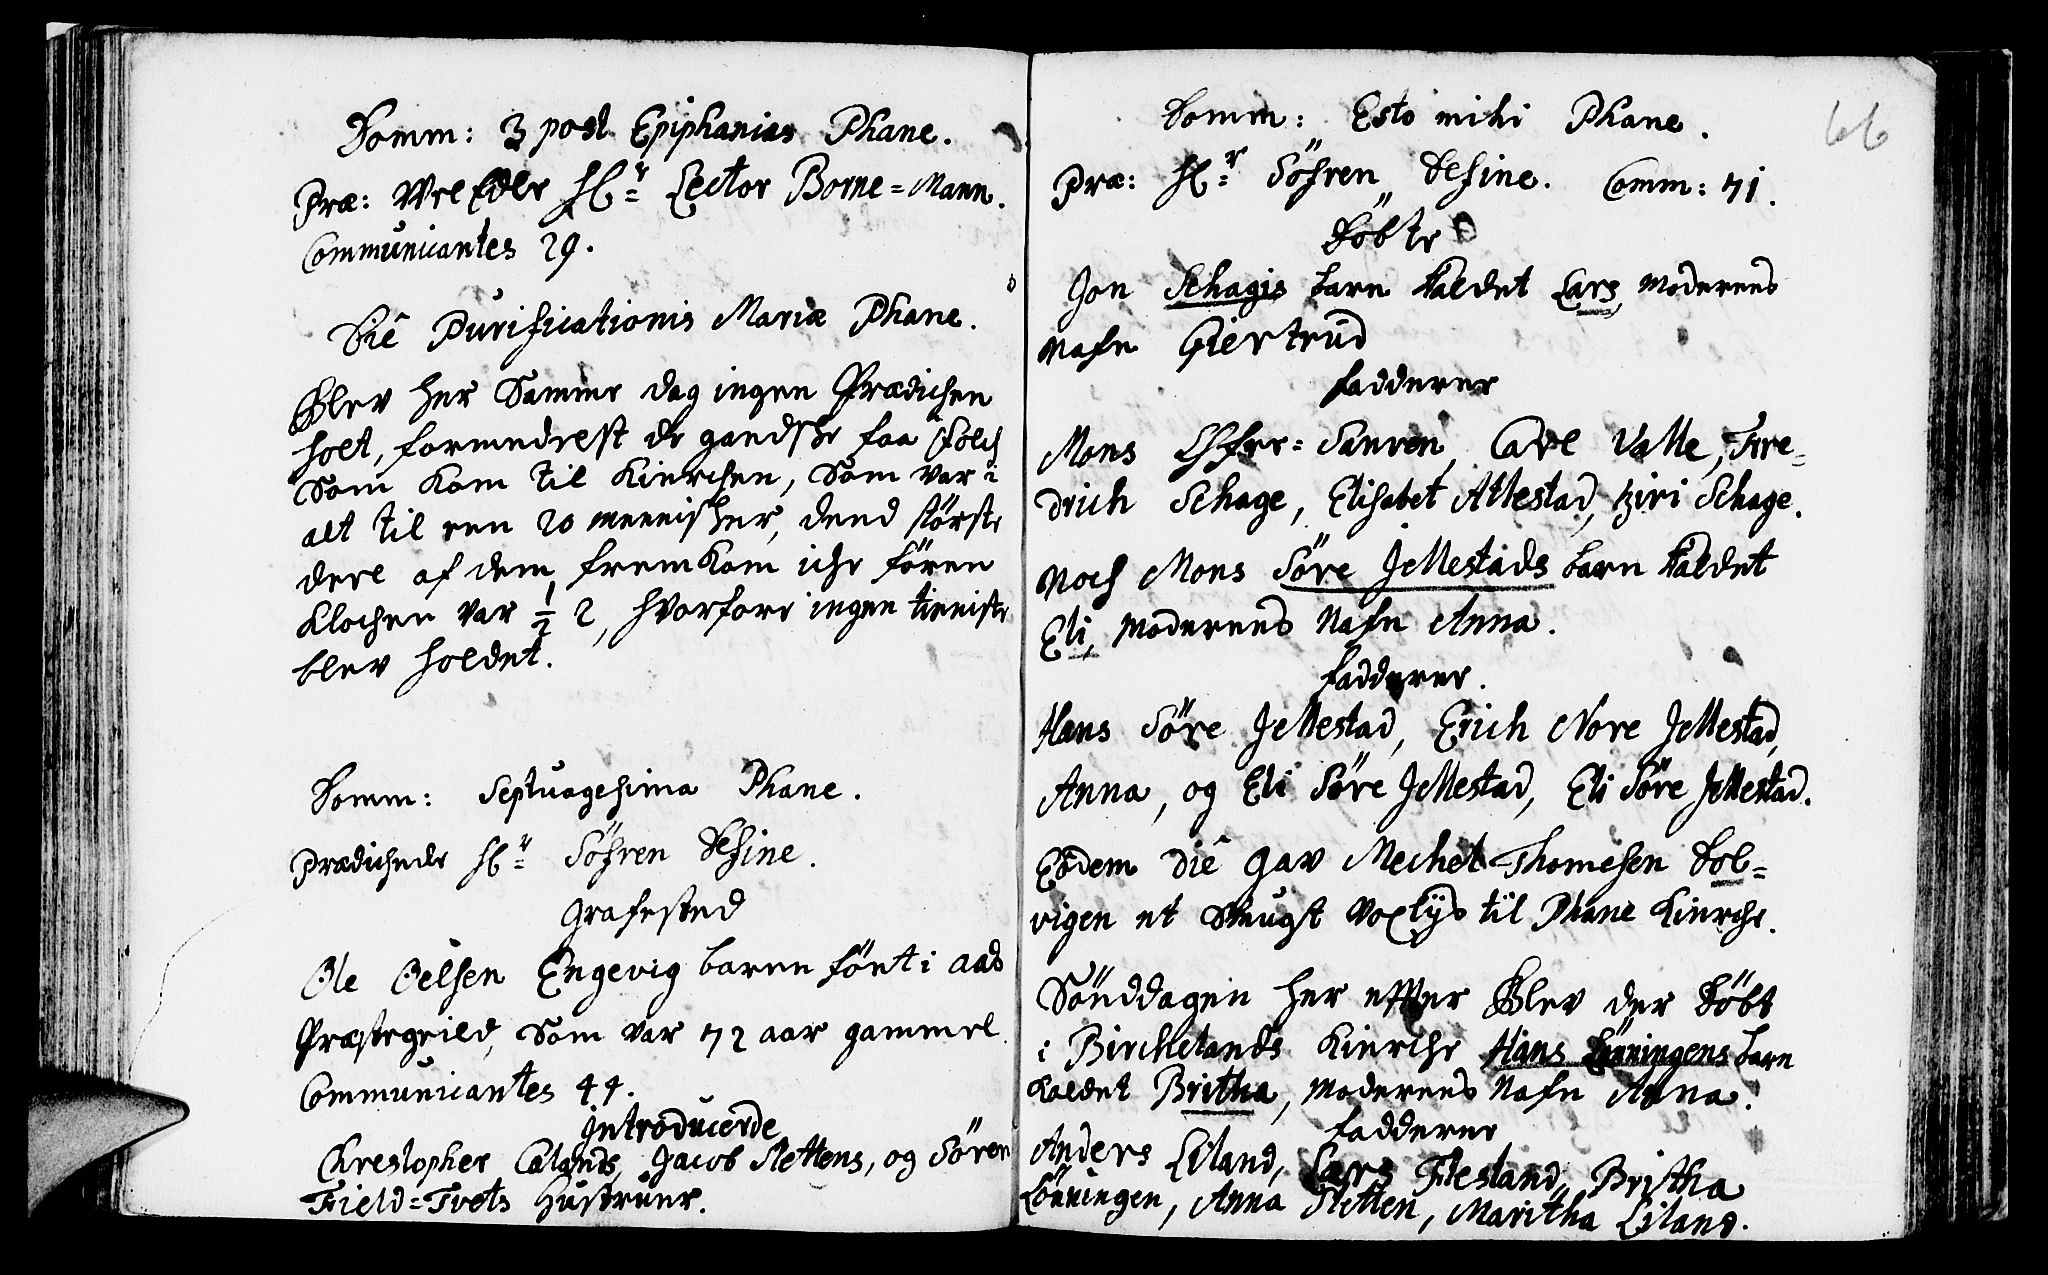 Domm: 3 post Epiphanias Phane.
Præ: Vel Edle Hr: Lector Borne=Mann.
Communicantes 29.
Die Purificationis Mariæ Phane.
Blev her Samme dag ingen Prædichen
holt, formedelst de gandske faa Folch
Som kom til Kierchen, Som var i
alt til een 20 menisker, dend störste
deel af dem fremkom iche fören
Klochen var 1/2 2, hvorfore ingen tieniste
blev holdet.
Domm: Septuagesima Phane.
Prædichede Hr: Söfren Desine.
Grafested
Ole Oelsen Engevig baaren föut i Aads
Præstegield, Som var 72 aar gammel.
Communicantes 44.
Introducerde
Chrestopher Calands, Jacob Slettens, og Sören
Field=Tvets Hustruer.
66
Domm: Esto mihi Phane.
Præ: Hr: Söfren Desine. Comm: 71.
Döbte
Jon Schagis barn kaldet Lars, Moderens
Nafn Giertrud
Fadderer
Mons Sanren, Carl Valle, Fre=
drich Schage, Elisabet Attestad, Kiri Schage.
Noch Mons Söre Jellestads barn kaldet
Eli, Moderens Nafn Anna.
Fadderer.
Hans Söre Jellestad, Erich Nore Jellestad,
Anna, og Eli Söre Jellestad, Eli Söre Jellestad.
Eodem die gav Mechel Thomesen Dol=
vigen et Smugt Voxlys til Phane Kierche.
Sönddagen her effter Blev der Döbt
i Birchelands Kierche Hans Lönningens barn
kaldet Britha, Moderens Nafn Anna.
Fadderer
Anders Liland, Lars Flesland, Britha
Lönningen, Anna Sletten, Maritha Liland.